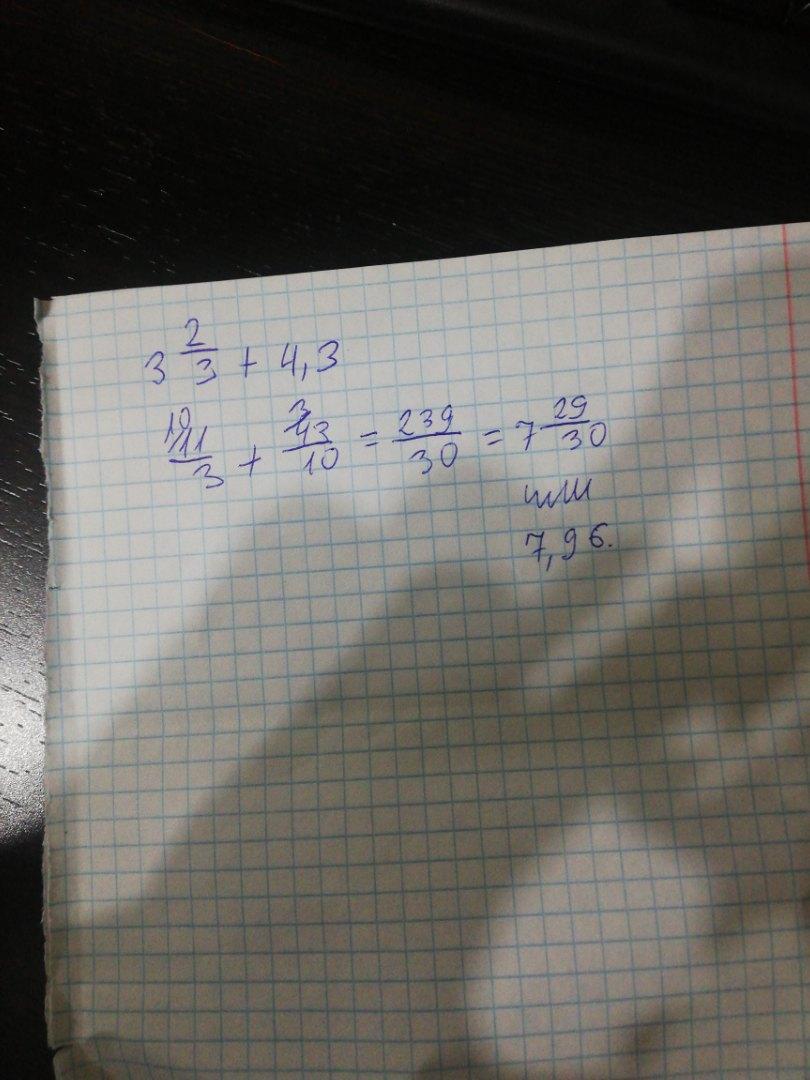 3 2/3 + 4,3
10 11/3 + 3 43/10 = 239/30 = 7 29/30
или
7,96.